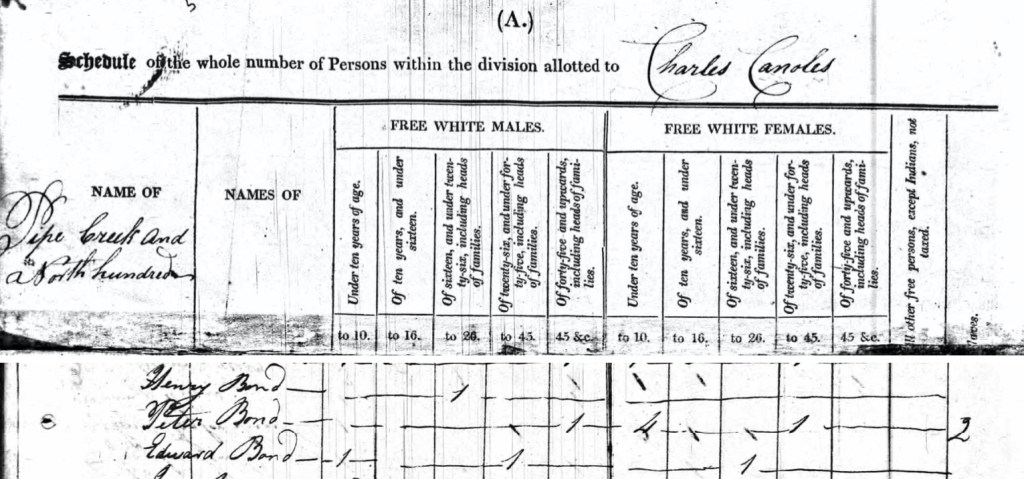 (A.)
Schedule of the whole number of Persons within the division allotted to Charles Canoles
FREE WHITE MALES. FREE WHITE FEMALES.
NAME OF NAMES OF
Pipe Creek and
North hundred
Under ten years of age.
Of ten years, and under
sixteen.
Of sixteen, and under twen-
ty-six, including heads
of families.
Of twenty-six, and under for-
ty-five, including heads
of families.
Of forty-five and upwards,
including heads of fami-
lies.
Under ten years of age.
Of ten years, and under
sixteen.
Of sixteen and under twen-
ty-six, including heads
of families.
Of twenty-six, and under for-
ty-five, including heads
of families.
Of forty-five and upwards,
including heads of fami-
lies.
ll other free persons, except Indians, not
taxed.
laves.
to 10. to 16. to 26. to 45. 45 &c. to 10. to 16. to 26. to 45. 45 &c.
Henry Bond 1
Peter Bond 1 4 1 2
Edward Bond 1 1 1